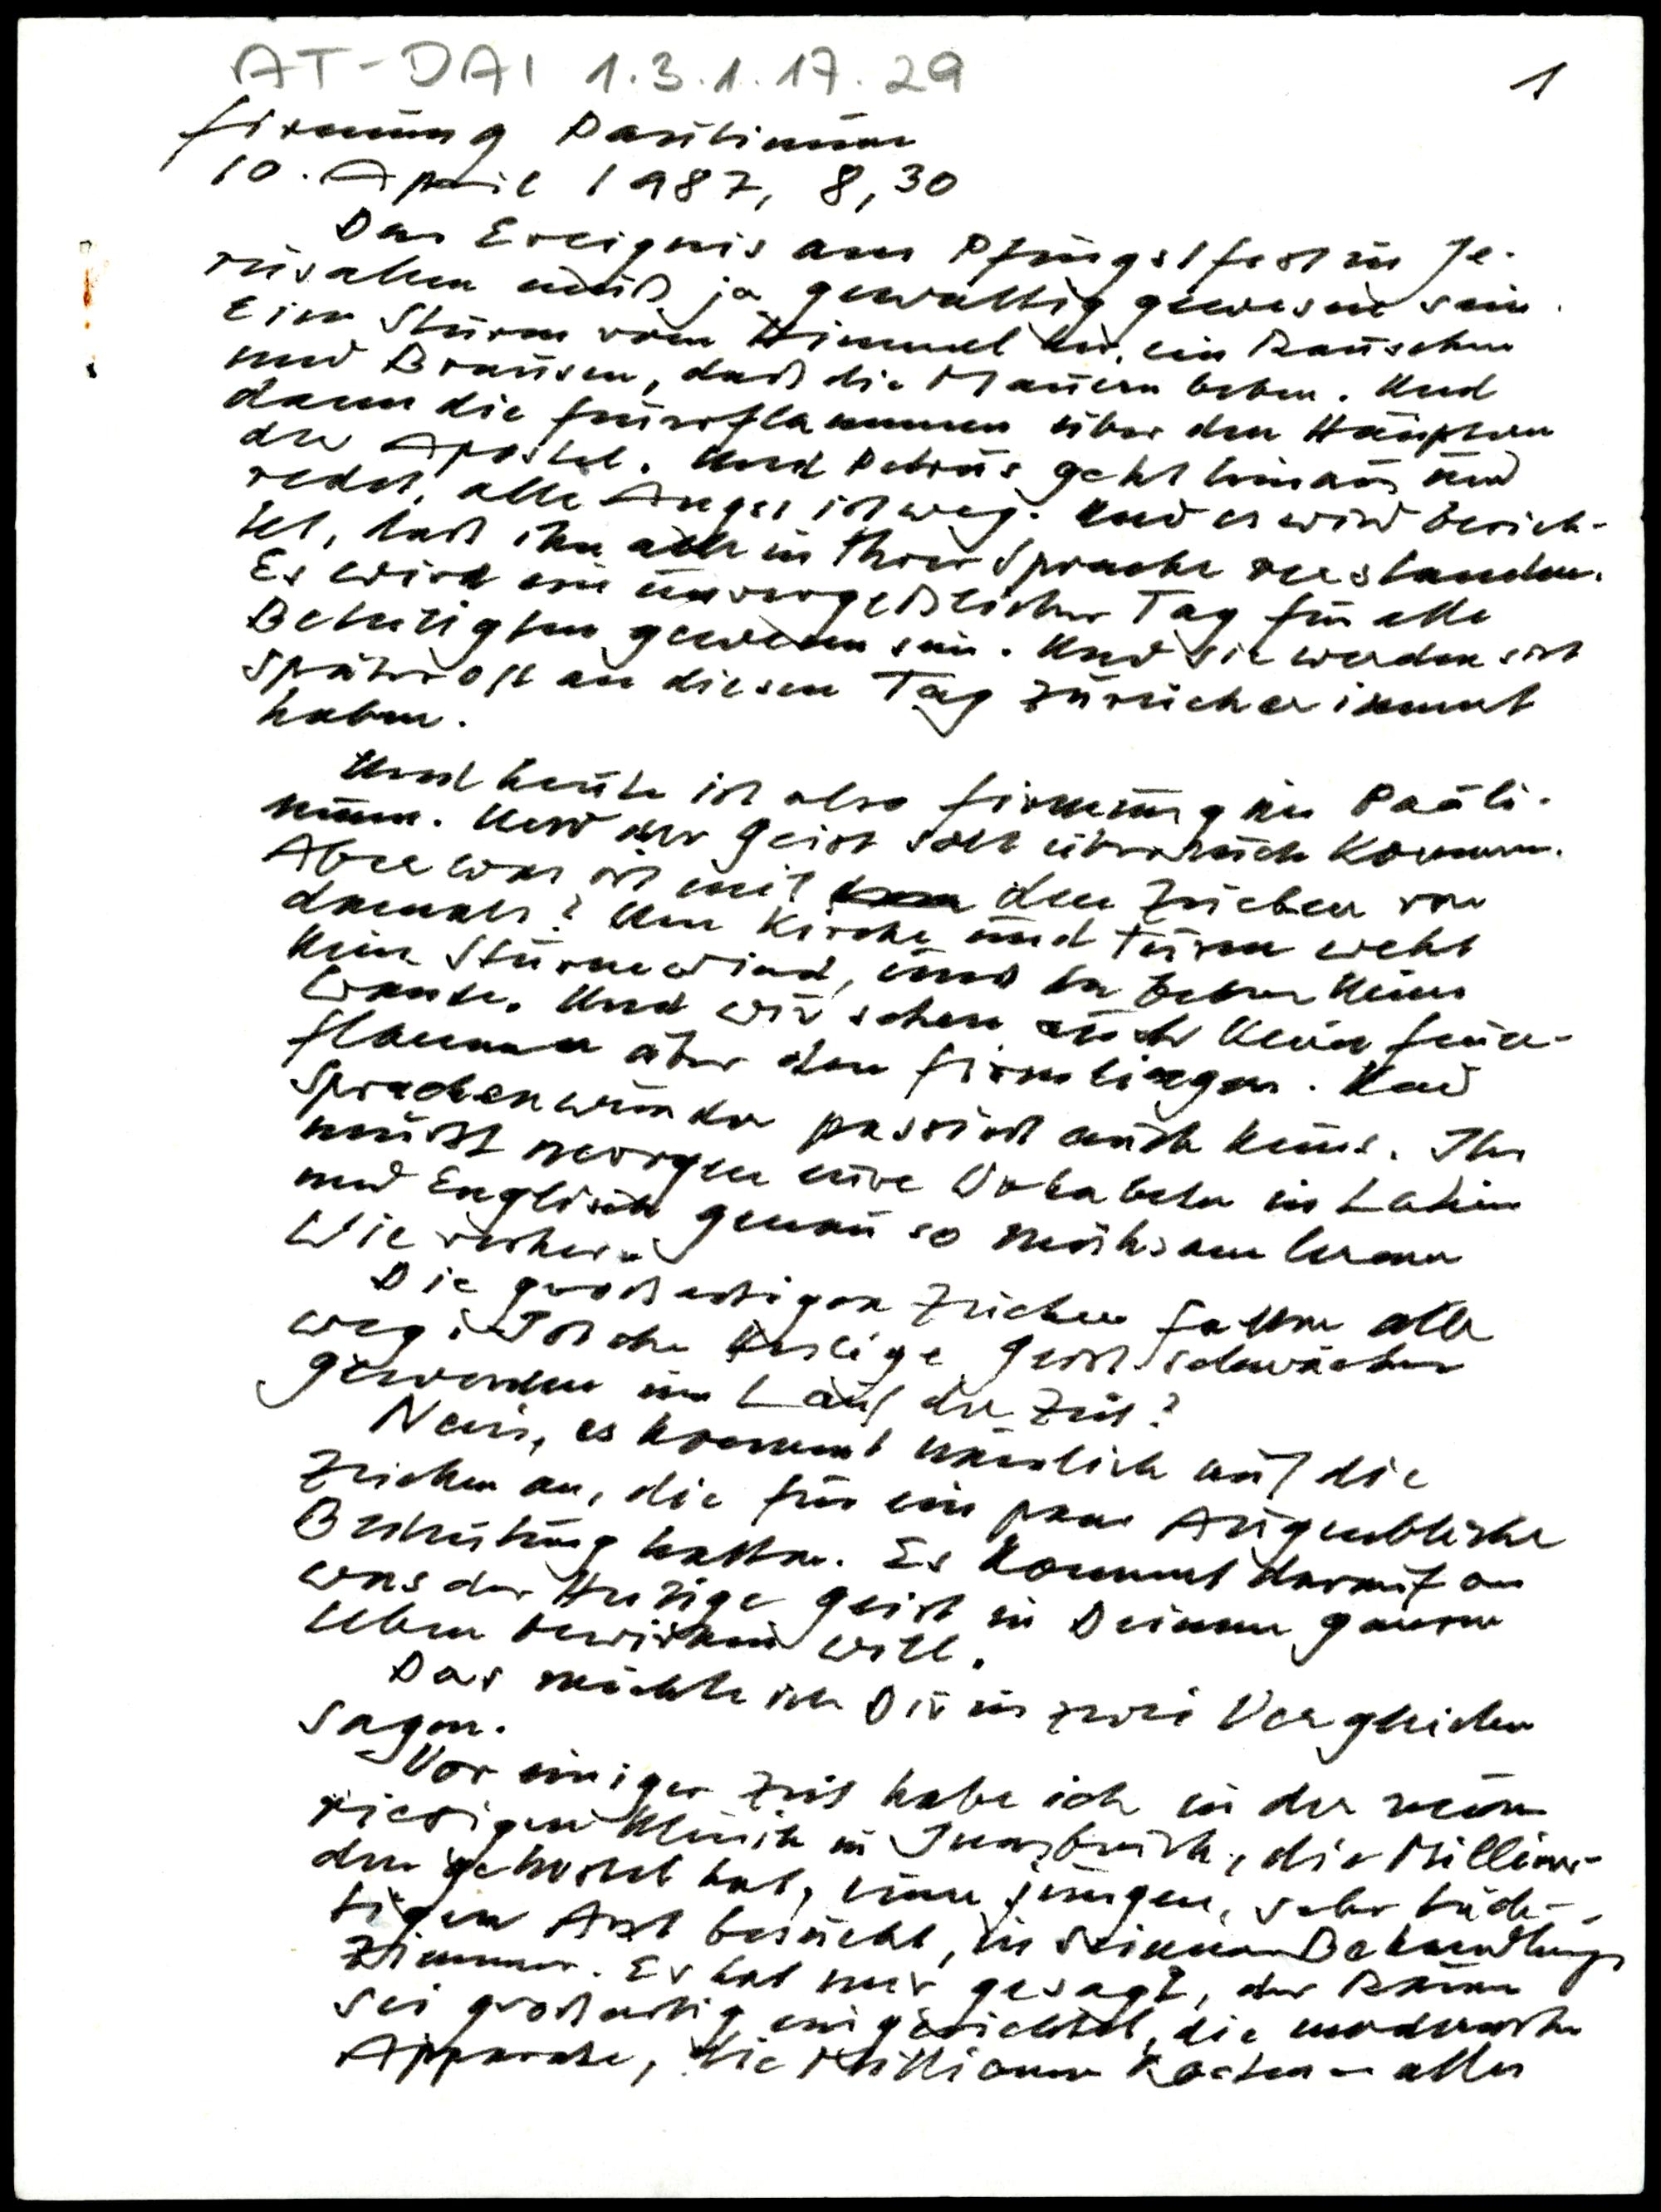 AT-DAI 1.3.1.17.29
1
Firmung Paulinum
10. April 1987, 8,30
Das Ereignis am Pfingstfest in Je-
rusalem muß ja gewaltig gewesen sein.
Ein Sturm vom Himmel her, ein Rauschen
und Brausen, daß die Mauern beben. Und
dann die Feuerflammen über den Häuptern
der Apostel. Und Petrus geht hinaus und
redet, alle Angst ist weg. Und es wird berich-
tet, daß ihn alle in Ihrer Sprache verstanden.
Es wird ein unvergeßlicher Tag für alle
Beteiligten gewesen sein. Und sie werden sich
später oft an diesen Tag zurückerinnert
haben.
Und heute ist also Firmung im Pauli-
num. Und der Geist soll über euch kommen.
Aber was ist mit den Zeichen von
damals? Um Kirche und Turm weht
kein Sturmwind, und da beben keine
Wände. Und wir sehen auch keine Feuer-
flammen über den Firmlingen. Und
Sprachenwunder passiert auch keins. Ihr
müßt morgen eure Vokabeln in Latein
und Englisch genau so mühsam lernen
wie vorher.
Die großartigen Zeichen fallen alle
weg. Ist der Heilige Geist schwächer
geworden im Lauf der Zeit?
Nein, es kommt nämlich auf die
Zeichen an, die für ein paar Augenblicke
Bedeutung hatten. Es kommt darauf an
was der Heilige Geist in Deinem ganzen
Leben bewirken will.
Das möchte ich Dir in zwei Vergleichen
sagen.
Vor einiger Zeit habe ich in der neuen
riesigen Klinik in Innsbruck, die Milliar-
den gekostet hat, einen jungen, sehr tüch-
tigen Arzt besucht, in seinem Behandlungs
zimmer. Er hat mir gesagt, der Raum
sei großartig eingerichtet, die modernsten
Apparate, die Millionen kosten - alles